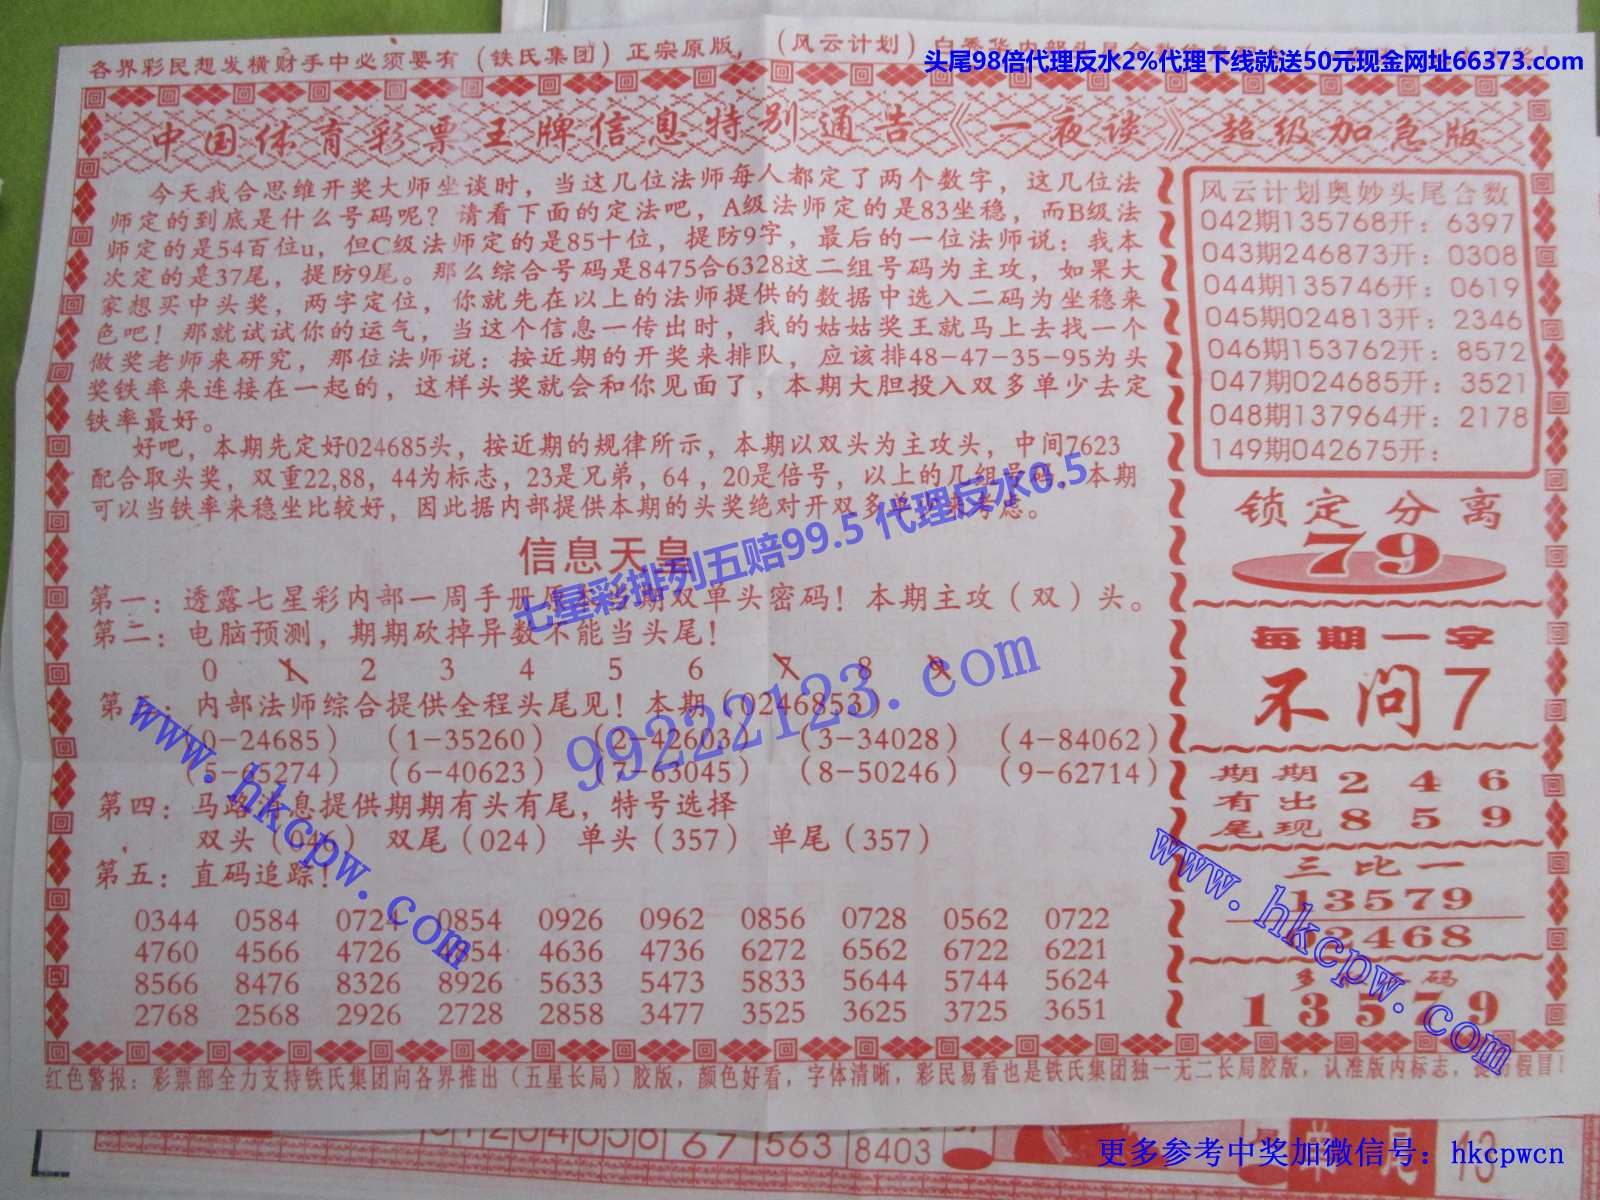 各界彩民想发横财手中必须要有（铁氏集团）正宗原版，（风云计划）
头尾98倍代理反水2%代理下线就送50元现金网址66373.com
中国体育彩票王牌信息特别通告《一夜谈》超级加急版
今天我合思维开奖大师坐谈时，当这几位法师每人都定了两个数字，这几位法
师定的到底是什么号码呢？请看下面的定法吧，A级法师定的是83坐稳，而B级法
师定的是54百位u，但C级法师定的是85十位，提防9字，最后的一位法师说：我本
次定的是37尾，提防9尾。那么综合号码是8475合6328这二组号码为主攻，如果大
家想买中头奖，两字定位，你就先在以上的法师提供的数据中选入二码为坐稳来
色吧！那就试试你的运气，当这个信息一传出时，我的姑姑奖王就马上去找一个
做奖老师来研究，那位法师说：按近期的开奖来排队，应该排48-47-35-95为头
奖铁率来连接在一起的，这样头奖就会和你见面了，本期大胆投入双多单少去定
铁率最好。
好吧，本期先定好024685头，按近期的规律所示，本期以双头为主攻头，中间7623
配合取头奖，双重22,88，44为标志，23是兄弟，64，20是倍号，以上的几组号码，本期
可以当铁率来稳坐比较好，因此据内部提供本期的头奖绝对开双多单少来考虑。
信息天皇
第一：透露七星彩内部一周手册原本当期双单头密码！本期主攻（双）头。
第二：电脑预测，期期砍掉异数不能当头尾！
0 1 2 3 4 5 6 7 8 9
第三：内部法师综合提供全程头尾见！本期（0246853）
（0-24685）（1-35260）（2-42603）（3-34028）（4-84062）
（5-65274）（6-40623）（7-63045）（8-50246）（9-62714）
第四：马路消息提供期期有头有尾，特号选择
双头（046）双尾（024）单头（357）单尾（357）
第五：直码追踪！
0344 0584 0724 0854 0926 0962 0856 0728 0562 0722
4760 4566 4726 4854 4636 4736 6272 6562 6722 6221
8566 8476 8326 8926 5633 5473 5833 5644 5744 5624
2768 2568 2926 2728 2858 3477 3525 3625 3725 3651
风云计划奥妙头尾合数
042期135768开：6397
043期246873开：0308
044期135746开：0619
045期024813开：2346
046期153762开：8572
047期024685开：3521
048期137964开：2178
149期042675开：
锁定分离
79
每期一字
不问7
期期 2 4 6
有出
尾现 8 5 9
三比一
13579
02468
码
13579
红色警报：彩票部全力支持铁氏集团向各界推出（五星长局）胶版，颜色好看，字体清晰，彩民易看也是铁氏集团独一无二长局胶版，认准版内标志，提防假冒！
七星彩排列五赔99.5 代理反水0.5
99222123.com
www.hkcpw.com
www.hkcpw.com
67 563 8403
更多参考中奖加微信号：hkcpwcn